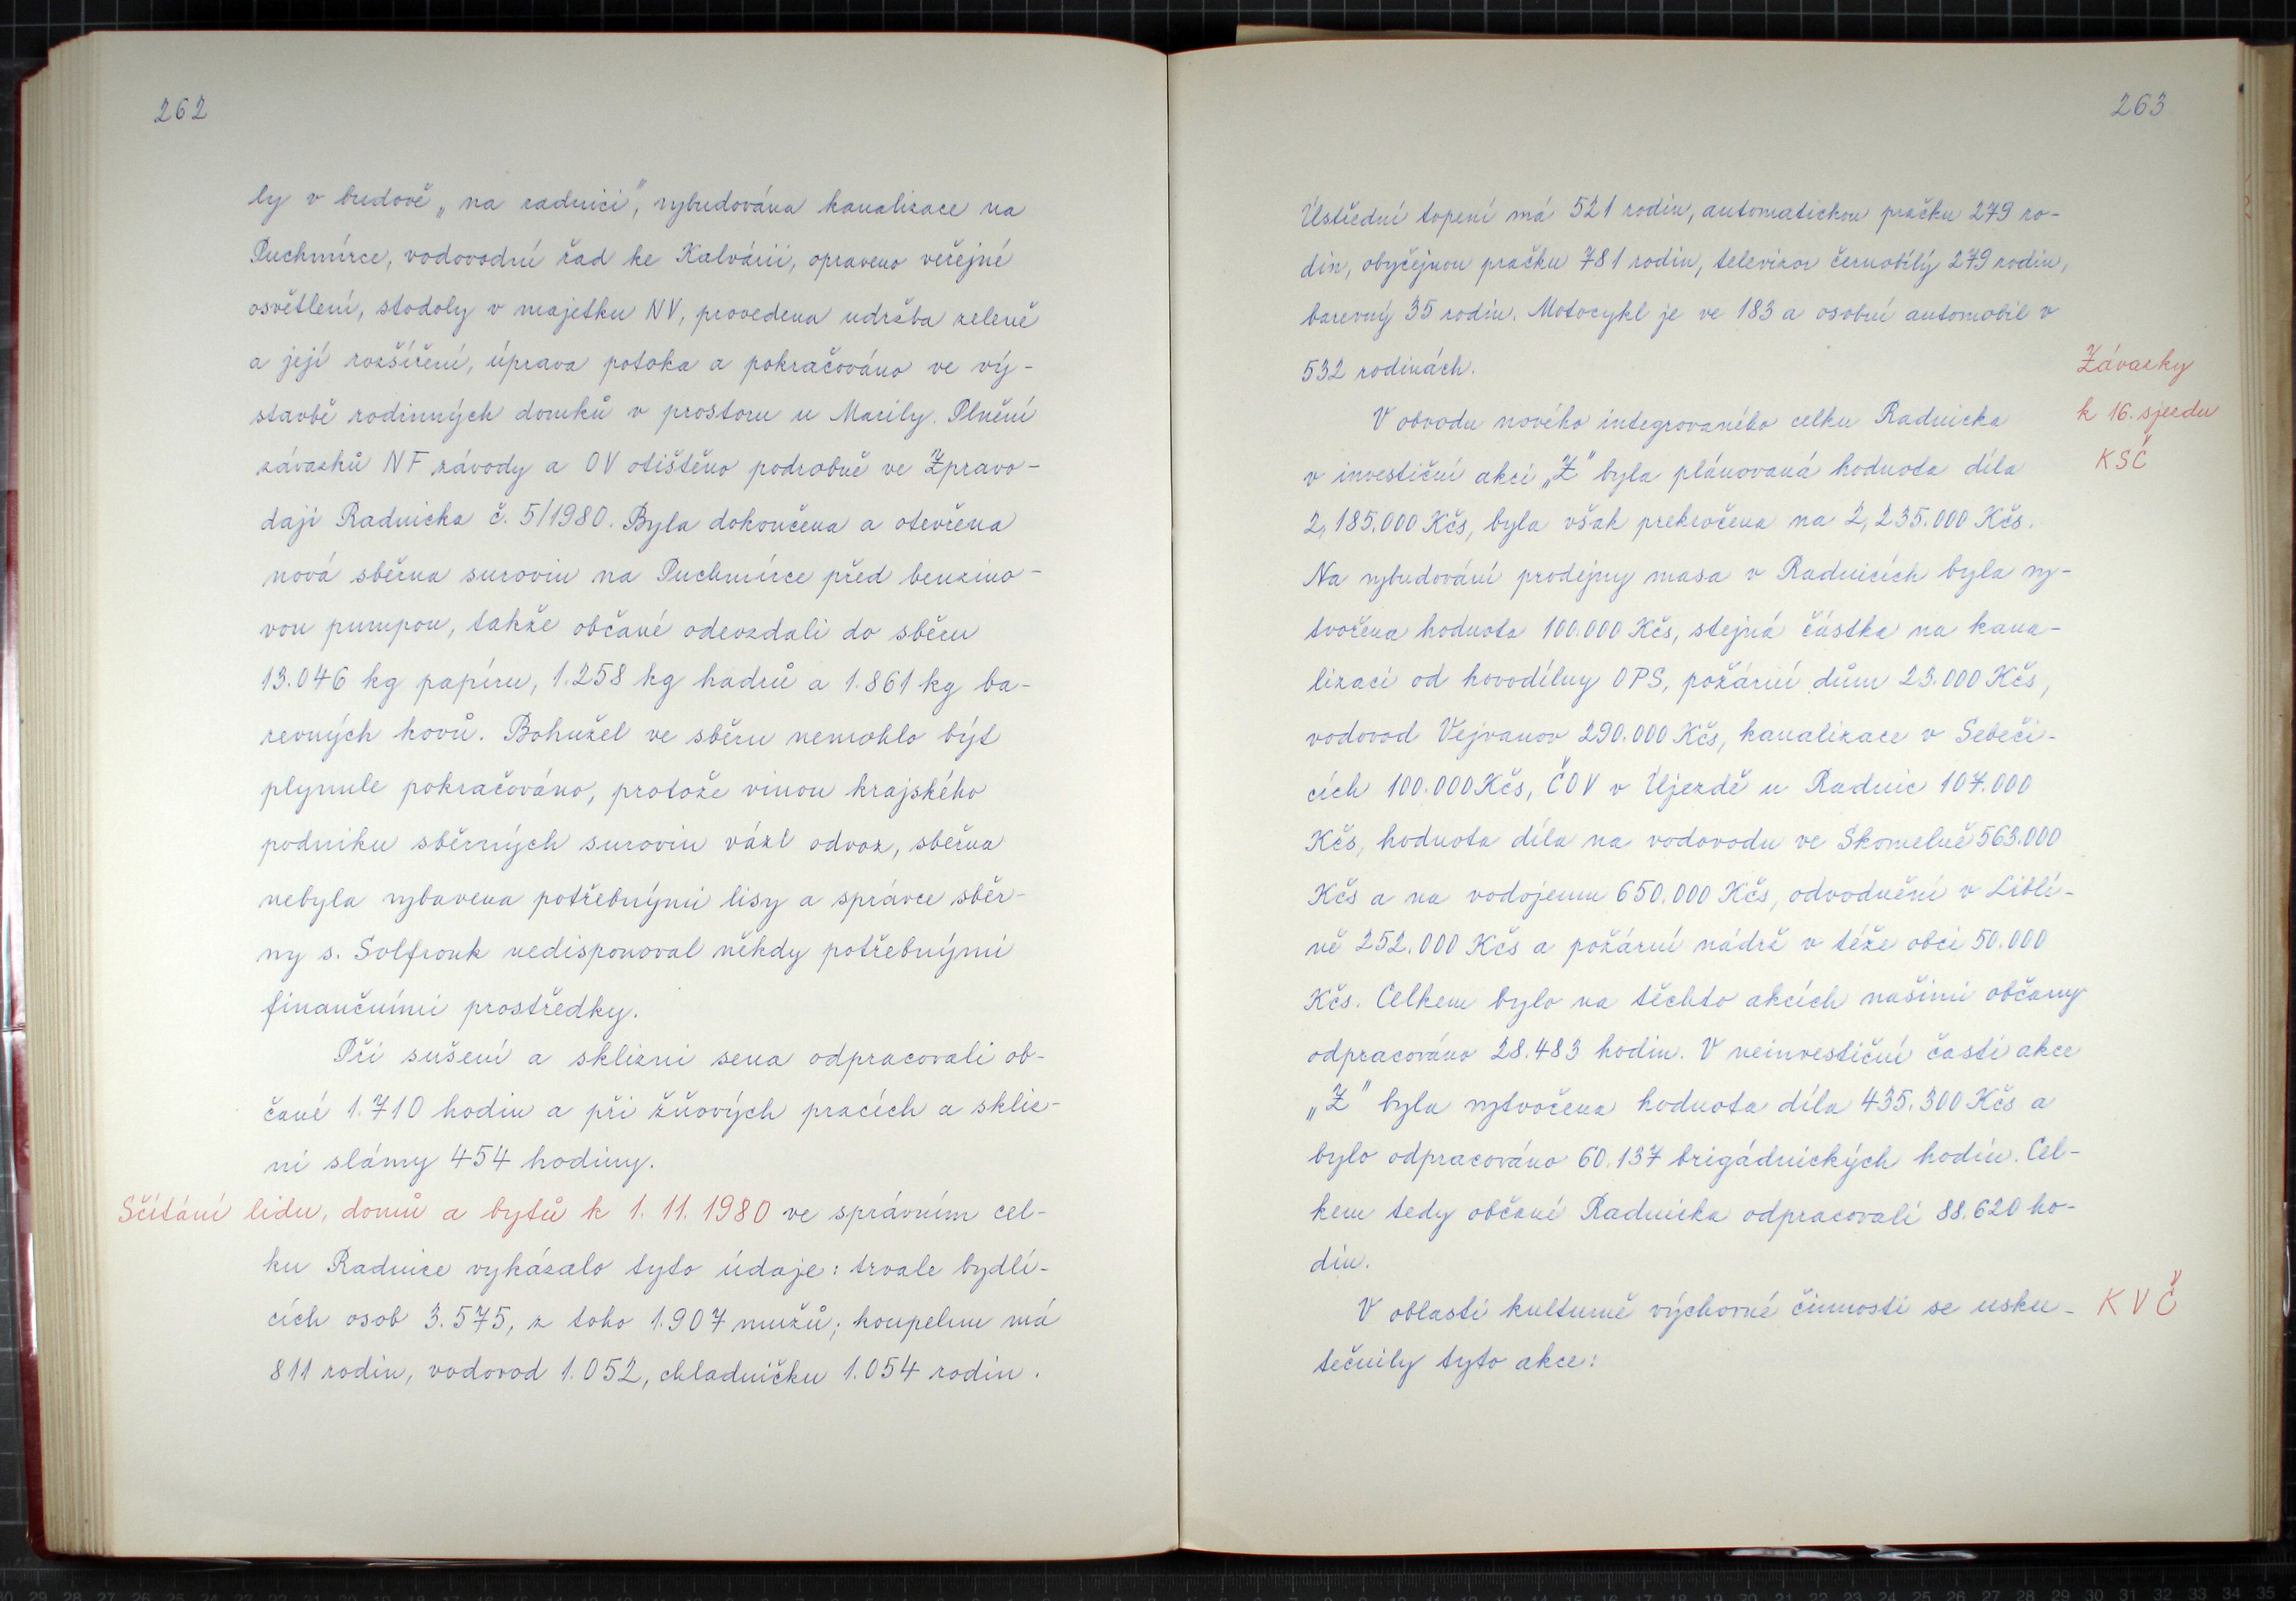 262
ly v budově „na radnici", vybudována kanalizace na
Puchmírce, vodovodní řad ke Kalvárii, opraveno veřejné
osvětlení, stodoly v majetku NV, provedena udržba zeleně
a její rozšíření, úprava potoka a pokračováno ve vý-
stavbě rodinných domků v prostoru u Marily. Plnění
závazků NF závody a OV otištěno podrobně ve Zpravo-
daji Radnicka č. 5/1980. Byla dokončena a otevřena
nová sběrna surovin na Puchmírce před benzino-
vou pumpou, takže občané odevzdali do sběru
13.046 kg papíru, 1.258 kg hadrů a 1.861 kg ba-
revných kovů. Bohužel ve sběru nemohlo být
plynule pokračováno, protože vinou krajského
podniku sběrných surovin vázl odvoz, sběrna
nebyla vybavena potřebnými lisy a správce sběr-
ny s. Solfronk nedisponoval někdy potřebnými
finančními prostředky.
Při sušení a sklizni sena odpracovali ob-
čané 1.710 hodin a při žňových pracích a skliz-
ni slámy 454 hodiny.
Sčítání lidu, domů a bytů k 1. 11. 1980 ve správním cel-
ku Radnice vykázalo tyto údaje: trvale bydlí-
cích osob 3.575, z toho 1.907 mužů; koupelnu má
811 rodin, vodovod 1.052, chladničku 1.054 rodin.
263
Ústřední topení má 521 rodin, automatickou pračku 279 ro-
din, obyčejnou pračku 781 rodin, televizor černobílý 279 rodin,
barevný 35 rodin. Motocykl je ve 183 a osobní automobil v
532 rodinách.
Závazky
k 16. sjezdu
KSČ
V obvodu nového integrovaného celku Radnicka
v investiční akci „Z" byla plánovaná hodnota díla
2,185.000 Kčs, byla však prekročena na 2,235.000 Kčs.
Na vybudování prodejny masa v Radnicích byla vy-
tvořena hodnota 100.000 Kčs, stejná částka na kana-
lizaci od kovodílny OPS, požární dům 23.000 Kčs,
vodovod Vejvanov 290.000 Kčs, kanalizace v Sebeči-
cích 100.000 Kčs, ČOV v Újezdě u Radnic 107.000
Kčs, hodnota díla na vodovodu ve Skomelně 563.000
Kčs a na vodojemu 650.000 Kčs, odvodnění v Liblí-
ně 252.000 Kčs a požární nádrž v téže obci 50.000
Kčs. Celkem bylo na těchto akcích našimi občany
odpracováno 28.483 hodin. V neinvestiční časti akce
„Z" byla vytvořena hodnota díla 435.300 Kčs a
bylo odpracováno 60.137 brigádnických hodin. Cel-
kem tedy občané Radnicka odpracovali 88.620 ho-
din.
V oblasti kulturně výchovné činnosti se usku-
KVČ
tečnily tyto akce: